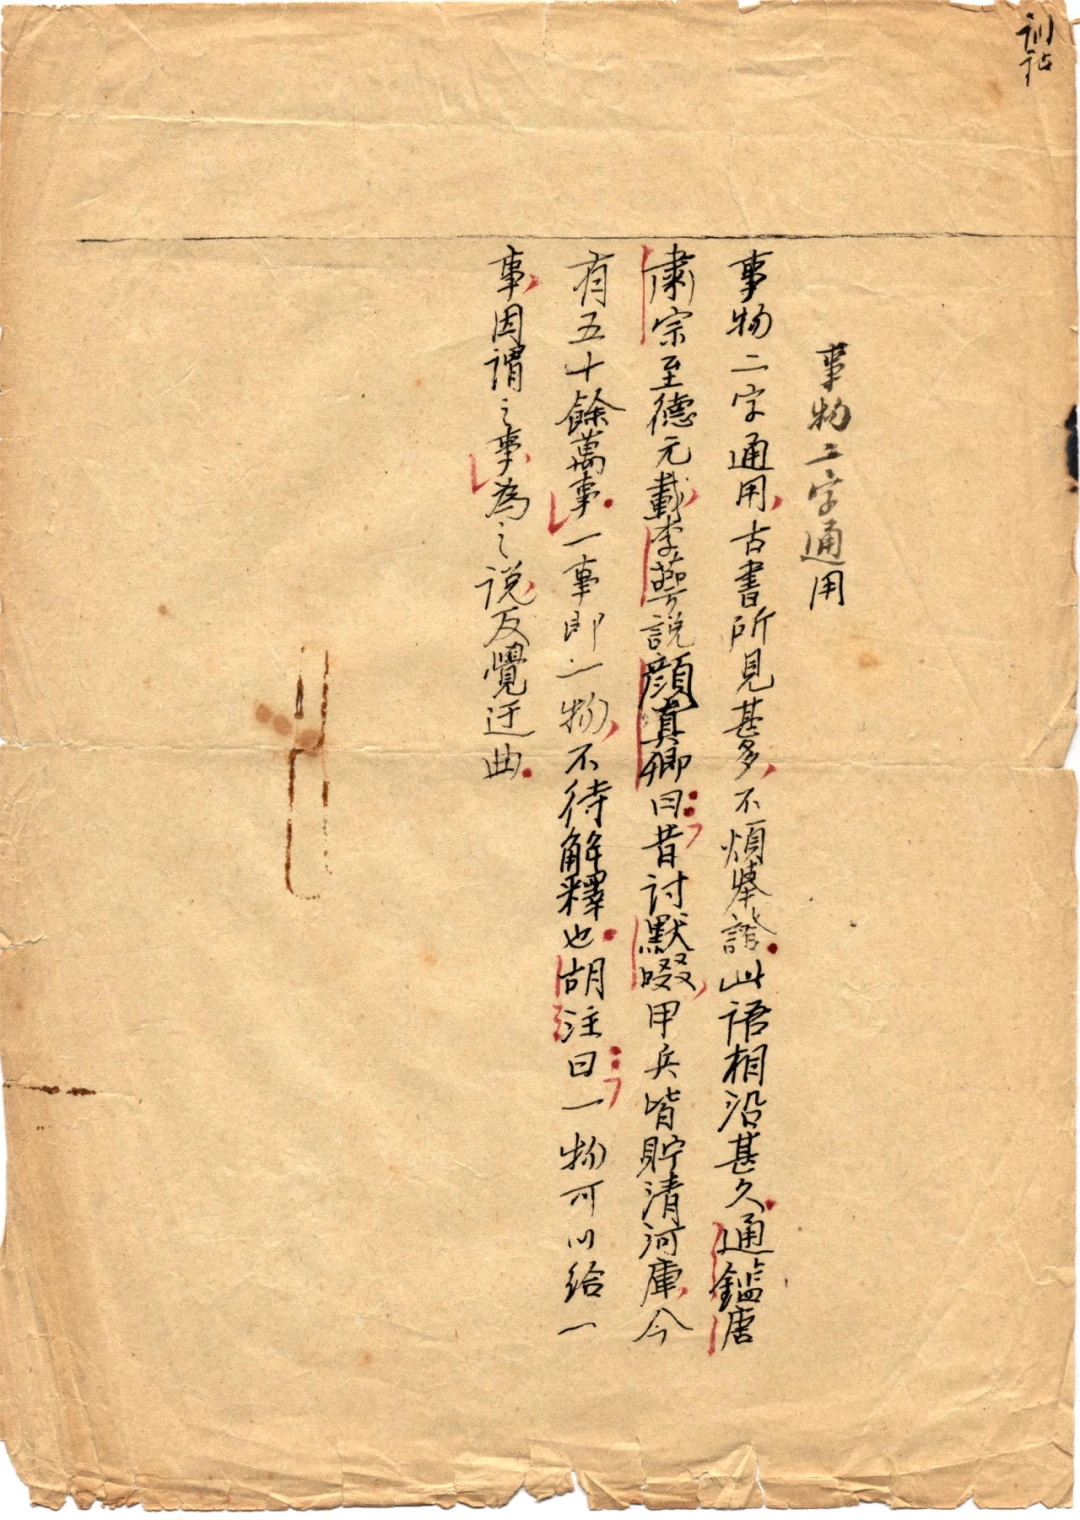 訓詁
事物二字通用
事物二字通用，古書所見甚多，不煩舉證。此語相沿甚久。通鑑唐
肅宗至德元載，李萼說顏真卿曰：「昔討默啜，甲兵皆貯清河庫，今
有五十餘萬事。」一事即一物，不待解釋也。胡注曰：「一物可以給一
事，因謂之事。」為之說，反覺迂曲。